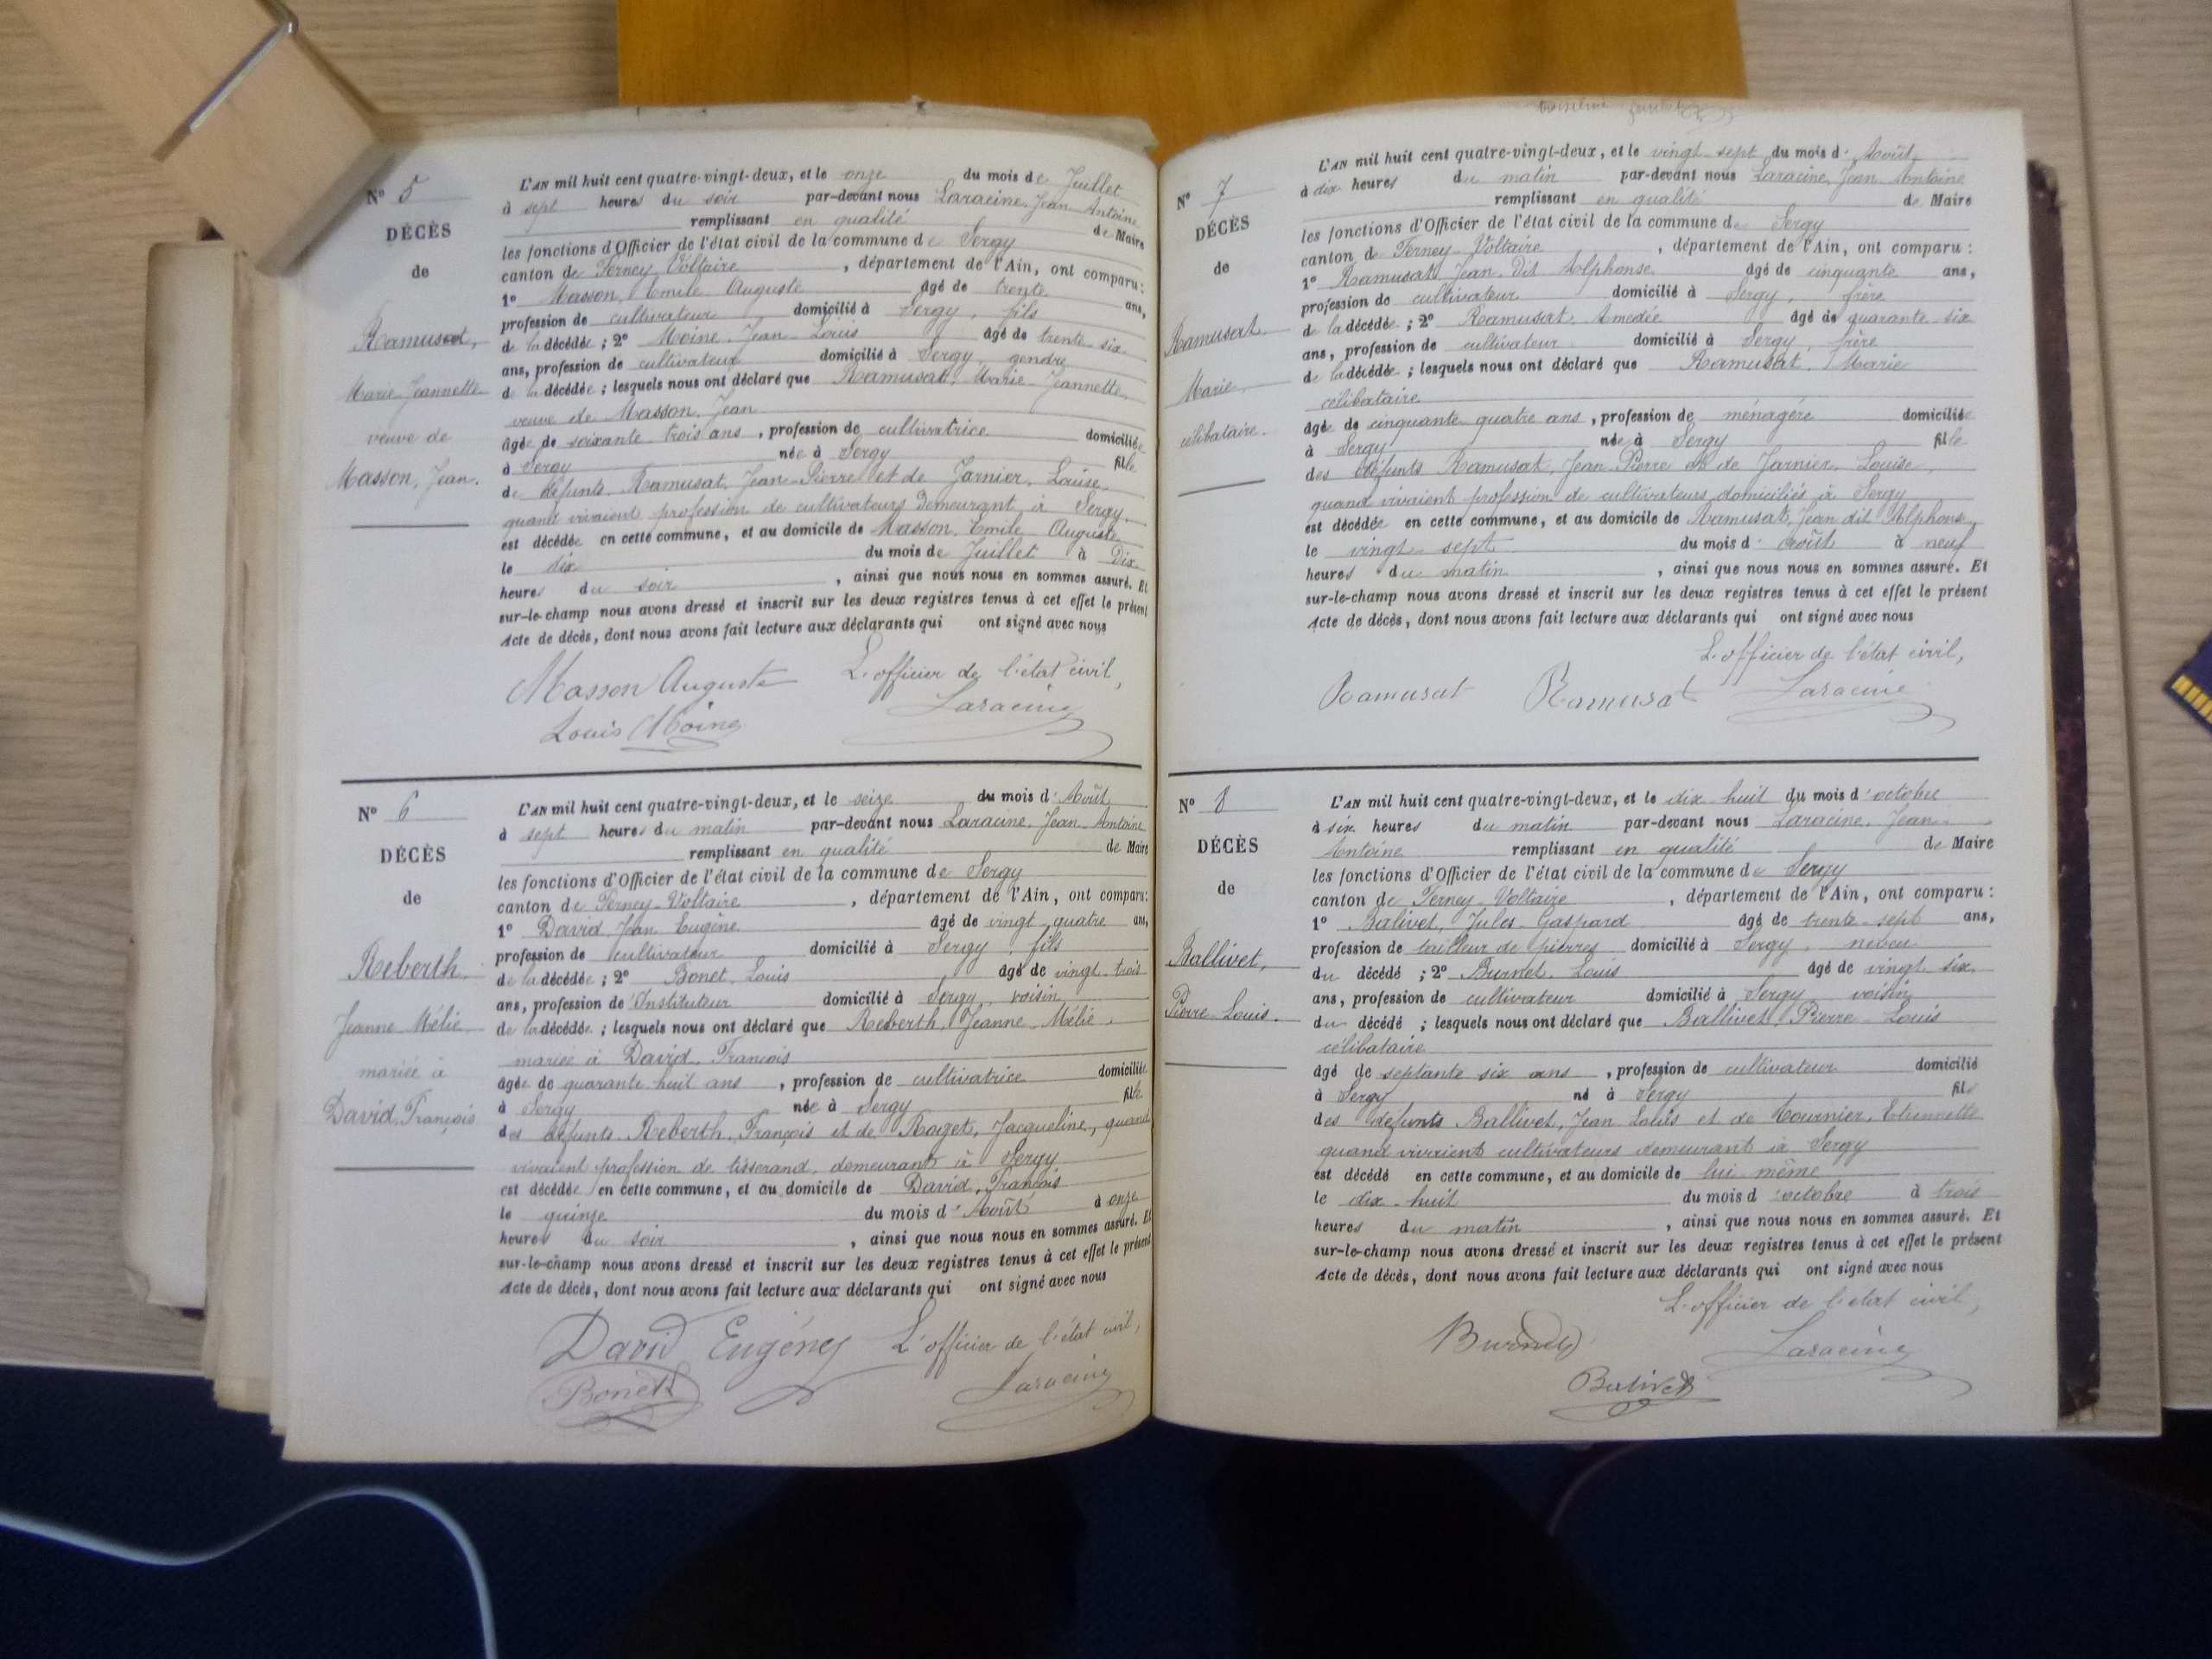 N° 5
DÉCÈS
de
Ramusat,
Marie Jeannette
veuve de
Masson, Jean.
L'AN mil huit cent quatre-vingt-deux, et le onze du mois de Juillet
à sept heures du soir par-devant nous Laracine, Jean Antoine
remplissant en qualité de Maire
les fonctions d'Officier de l'état civil de la commune de Sergy
canton de Ferney Voltaire, département de l'Ain, ont comparu :
1° Masson, Emile Auguste âgé de trente ans,
profession de cultivateur domicilié à Sergy, fils
de la décédée ; 2° Moine, Jean Louis âgé de trente-six
ans, profession de cultivateur domicilié à Sergy, gendre
de la décédée ; lesquels nous ont déclaré que Ramusat, Marie Jeannette,
veuve de Masson, Jean
âgée de soixante-trois ans, profession de cultivatrice domiciliée
à Sergy née à Sergy fille
de défunts Ramusat, Jean-Pierre et de Jarnier, Louise,
quand vivaient profession de cultivateurs demeurant à Sergy
est décédée en cette commune, et au domicile de Masson, Emile Auguste
le dix du mois de Juillet à Dix
heures du soir, ainsi que nous nous en sommes assuré. Et
sur-le-champ nous avons dressé et inscrit sur les deux registres tenus à cet effet le présent
Acte de décès, dont nous avons fait lecture aux déclarants qui ont signé avec nous
Masson Auguste L'officier de l'état civil,
Louis Moine Laracine
N° 6
DÉCÈS
de
Reberth
Jeanne Mélie
mariée à
David, François
L'AN mil huit cent quatre-vingt-deux, et le seize du mois d'Août
à sept heures du matin par-devant nous Laracine, Jean Antoine
remplissant en qualité de Maire
les fonctions d'Officier de l'état civil de la commune de Sergy
canton de Ferney-Voltaire, département de l'Ain, ont comparu :
1° David, Jean Eugène âgé de vingt-quatre ans,
profession de cultivateur domicilié à Sergy, fils
de la décédée ; 2° Bonet, Louis âgé de vingt-trois
ans, profession de Instituteur domicilié à Sergy, voisin
de la décédée ; lesquels nous ont déclaré que Reberth, Jeanne-Mélie,
mariée à David, François
âgée de quarante huit ans, profession de cultivatrice domiciliée
à Sergy née à Sergy fille
des défunts Reberth, François et de Roget, Jacqueline, quand
vivaient profession de tisserand, demeurant à Sergy
est décédée en cette commune, et au domicile de David, François
le quinze du mois d'Août à onze
heures du soir, ainsi que nous nous en sommes assuré. Et
sur-le-champ nous avons dressé et inscrit sur les deux registres tenus à cet effet le présent
Acte de décès, dont nous avons fait lecture aux déclarants qui ont signé avec nous
David Eugène L'officier de l'état civil,
Bonet Laracine
N° 7
DÉCÈS
de
Ramusat
Marie
célibataire.
L'AN mil huit cent quatre-vingt-deux, et le vingt-sept du mois d'Août
à dix heures du matin par-devant nous Laracine, Jean Antoine
remplissant en qualité de Maire
les fonctions d'Officier de l'état civil de la commune de Sergy
canton de Ferney-Voltaire, département de l'Ain, ont comparu :
1° Ramusat, Jean, dit Alphonse âgé de cinquante ans,
profession de cultivateur domicilié à Sergy, frère
de la décédée ; 2° Ramusat, Amedée âgé de quarante-six
ans, profession de cultivateur domicilié à Sergy, frère
de la décédée ; lesquels nous ont déclaré que Ramusat, Marie
célibataire
âgée de cinquante quatre ans, profession de ménagère domiciliée
à Sergy née à Sergy fille
des défunts Ramusat, Jean Pierre et de Jarnier, Louise,
quand vivaient profession de cultivateurs domiciliés à Sergy
est décédée en cette commune, et au domicile de Ramusat, Jean dit Alphonse
le vingt-sept du mois d'Août à neuf
heures du matin, ainsi que nous nous en sommes assuré. Et
sur-le-champ nous avons dressé et inscrit sur les deux registres tenus à cet effet le présent
Acte de décès, dont nous avons fait lecture aux déclarants qui ont signé avec nous
L'officier de l'état civil,
Ramusat Ramusat Laracine
N° 8
DÉCÈS
de
Ballivet,
Pierre Louis.
L'AN mil huit cent quatre-vingt-deux, et le dix-huit du mois d'octobre
à six heures du matin par-devant nous Laracine, Jean
Antoine remplissant en qualité de Maire
les fonctions d'Officier de l'état civil de la commune de Sergy
canton de Ferney-Voltaire, département de l'Ain, ont comparu :
1° Balivet, Jules Gaspard âgé de trente-sept ans,
profession de tailleur de pierres domicilié à Sergy, neveu
du décédé ; 2° Burnet, Louis âgé de vingt-six
ans, profession de cultivateur domicilié à Sergy voisin
du décédé ; lesquels nous ont déclaré que Ballivet, Pierre-Louis
célibataire
âgé de septante six ans, profession de cultivateur domicilié
à Sergy né à Sergy fils
des défunts Ballivet, Jean Louis et de Tournier, Etiennette
quand vivaient cultivateurs demeurant à Sergy
est décédé en cette commune, et au domicile de lui même
le dix-huit du mois d'octobre à trois
heures du matin, ainsi que nous nous en sommes assuré. Et
sur-le-champ nous avons dressé et inscrit sur les deux registres tenus à cet effet le présent
Acte de décès, dont nous avons fait lecture aux déclarants qui ont signé avec nous
L'officier de l'état civil,
Burnet Laracine
Balivet